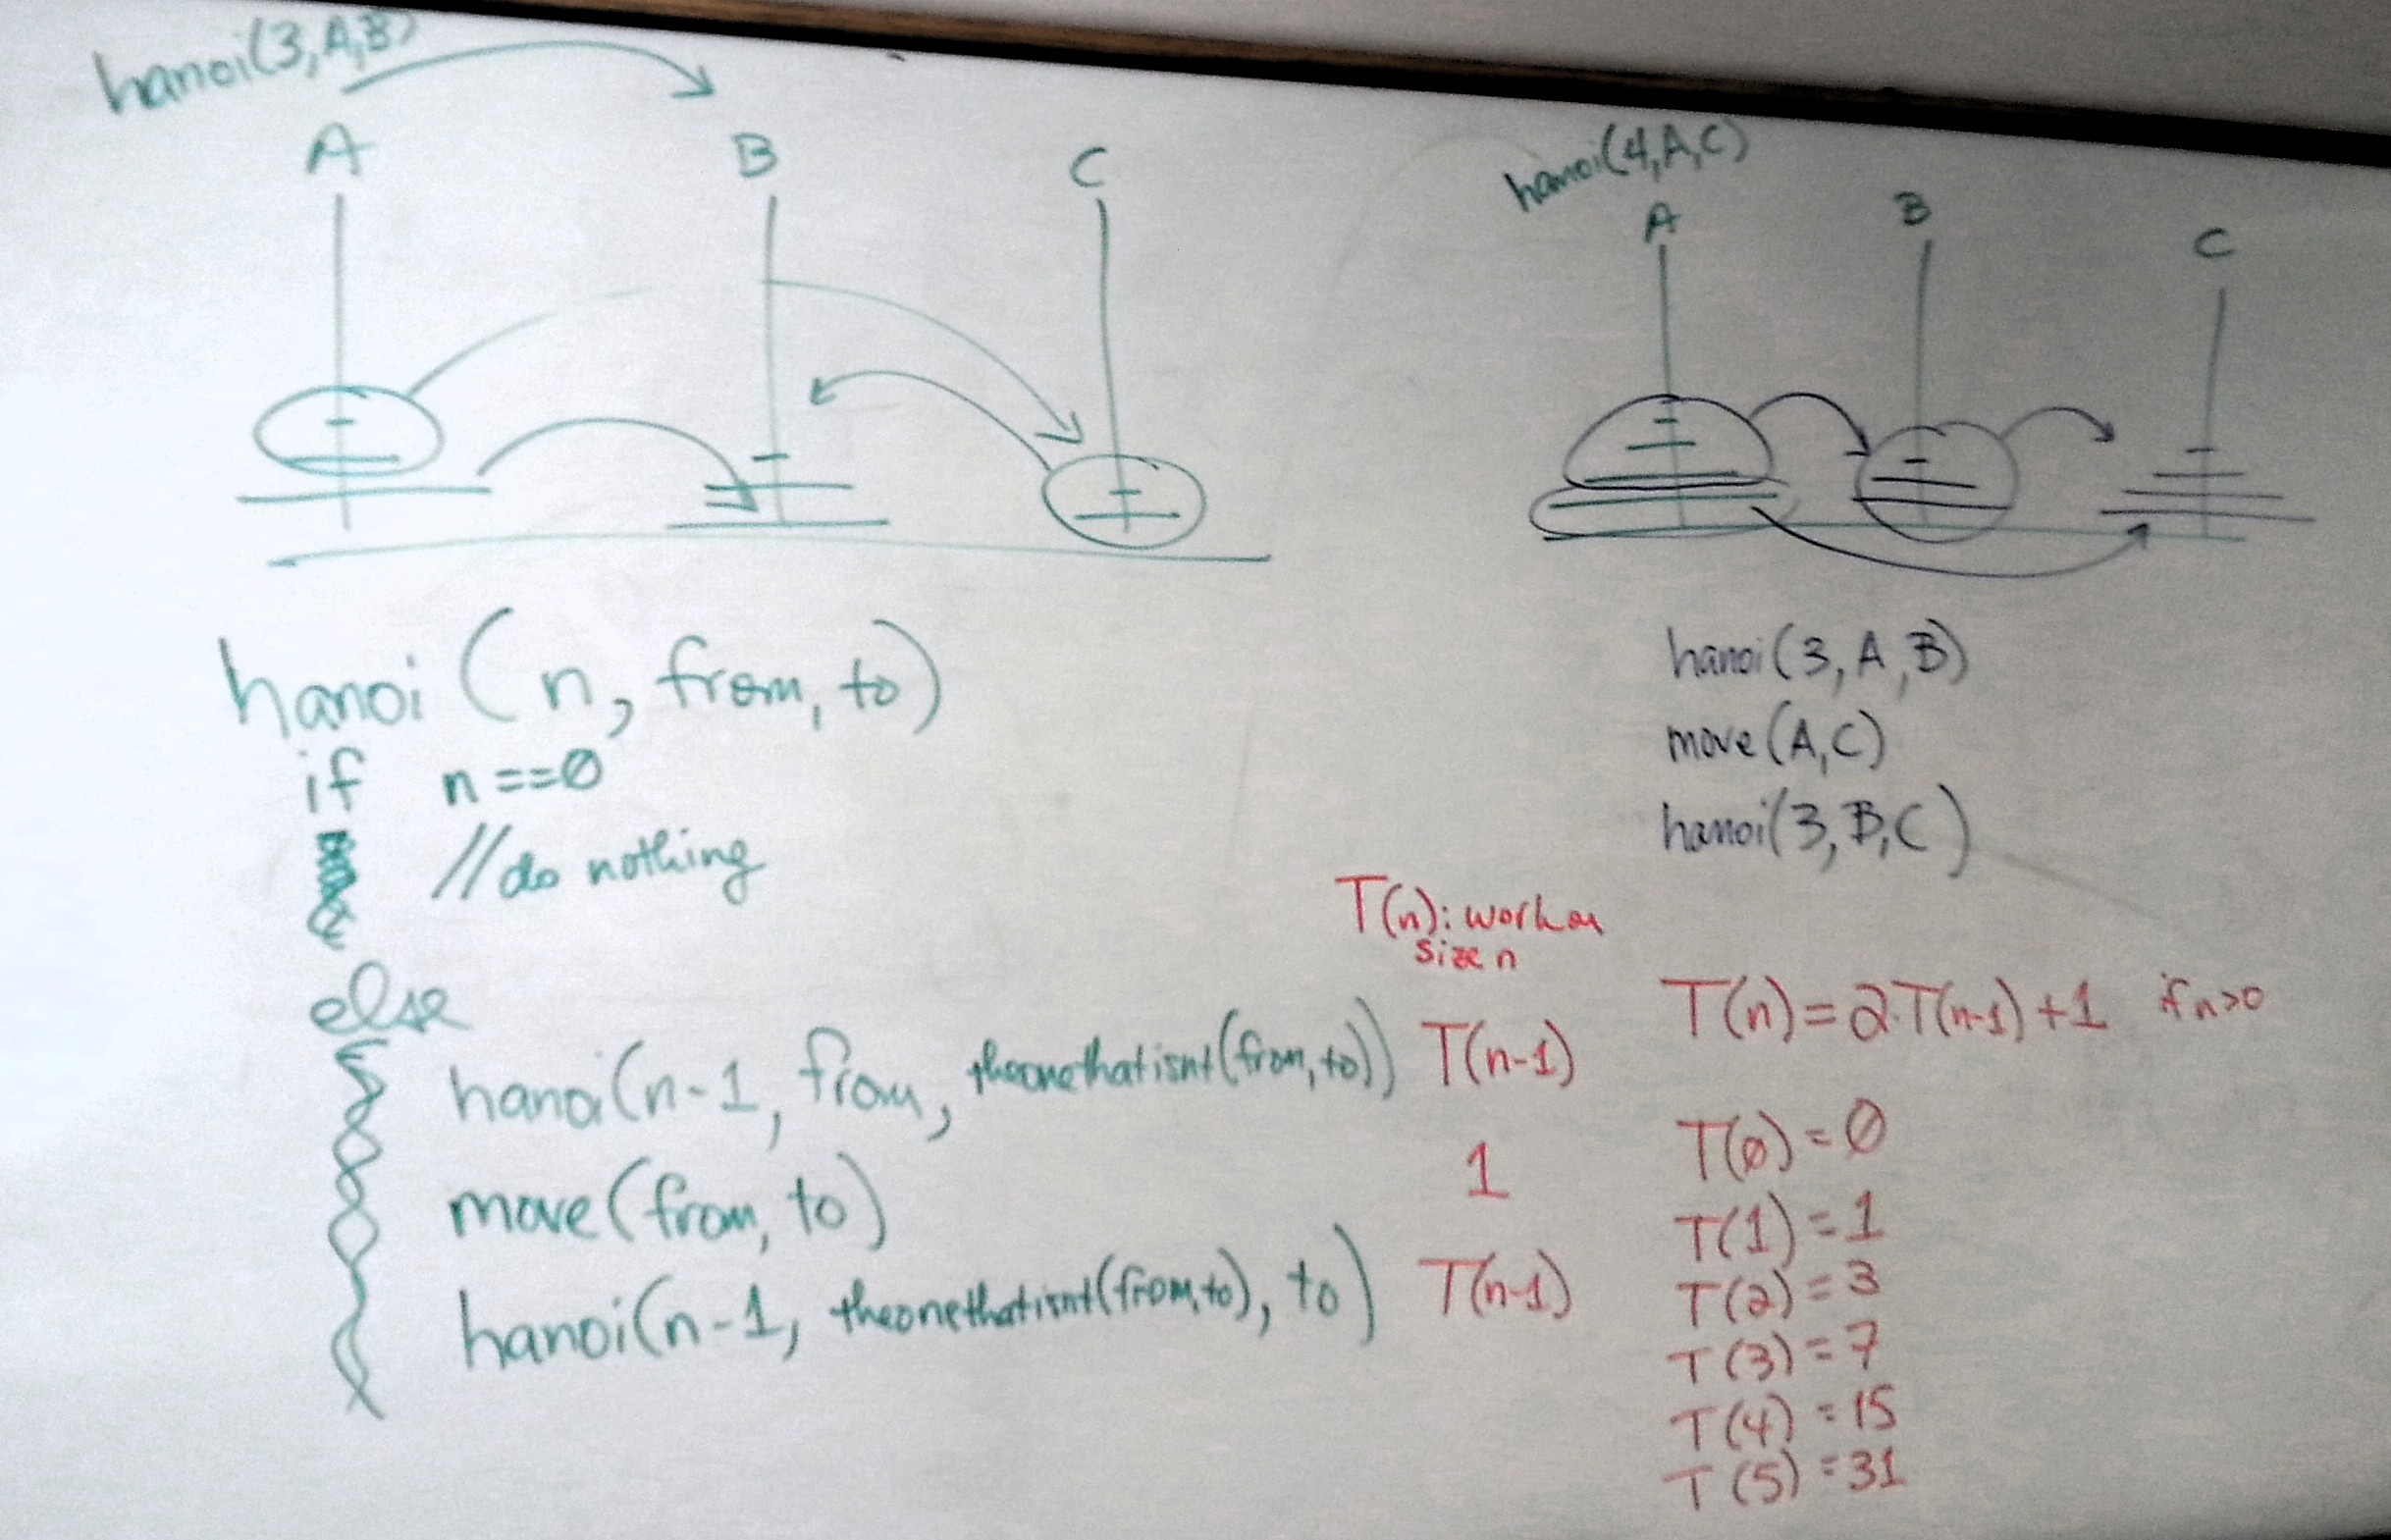 hanoi(3,A,B)
A B C
hanoi(4,A,C)
A B C
hanoi(n, from, to)
if n==0
//do nothing
else
hanoi(n-1, from, theonethatisnt(from, to))
move(from, to)
hanoi(n-1, theonethatisnt(from, to), to)
hanoi(3, A, B)
move(A,C)
hanoi(3, B, C)
T(n): work on
size n
T(n-1)
1
T(n-1)
T(n)=2·T(n-1)+1 if n>0
T(0)=0
T(1)=1
T(2)=3
T(3)=7
T(4)=15
T(5)=31